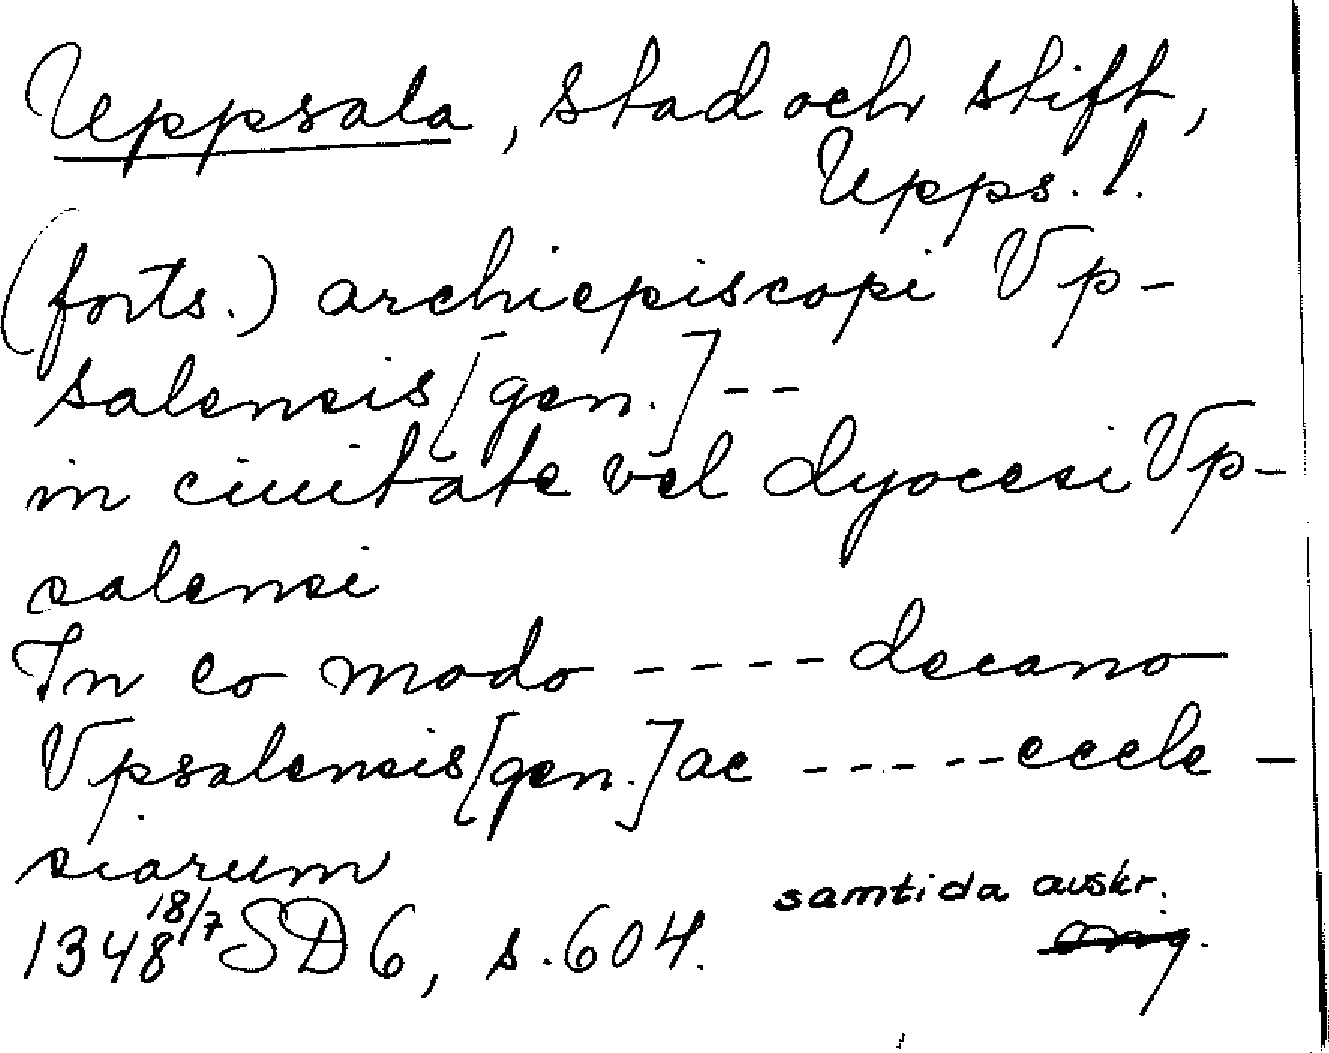 Uppsala, stad och stift,
Upps. l.
(forts.) archiepiscopi Vp-
salensis [gen.] --
in ciuitate vel dyocesi Vp-
salensi
In eo modo ---- decano
Vpsalensis [gen.] ac ----- eccle-
siarum
samtida avskr.
1348 18/7 SD 6, s. 604. orig.